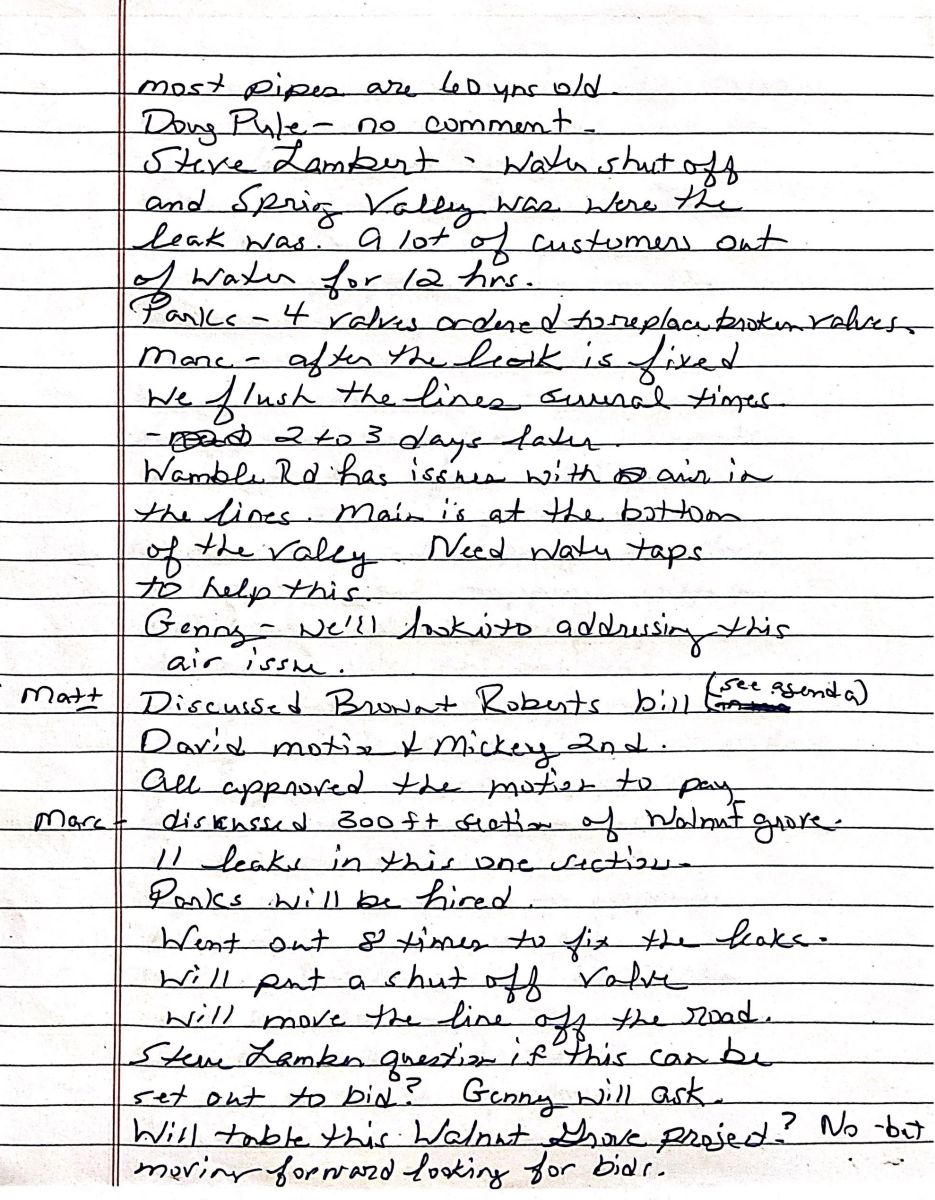 most pipes are 60 yrs old.
Doug Pyle - no comment -
Steve Lambert - Water shut off
and Sprig Valley was were the
leak was. A lot of customers out
of water for 12 hrs.
Parks - 4 valves ordered to replace broken valves.
Marc - after the leak is fixed
we flush the lines several times
- 2 to 3 days later.
Wamble Rd has issues with air in
the lines. Main is at the bottom
of the valey Need water taps
to help this.
Genny - we'll look into addressing this
air issue.
Matt Discussed Brownt Roberts bill (see agenda)
David motion & Mickey 2nd.
All approved the motion to pay
Marc - discussed 300 ft section of Walnut grove.
11 leaks in this one section -
Parks will be hired.
Went out 8 times to fix the leaks -
Will put a shut off valve
will move the line off the road.
Steve Lamber question if this can be
set out to bid? Genny will ask.
Will table this Walnut Grove project? No - but
moving forward looking for bids.